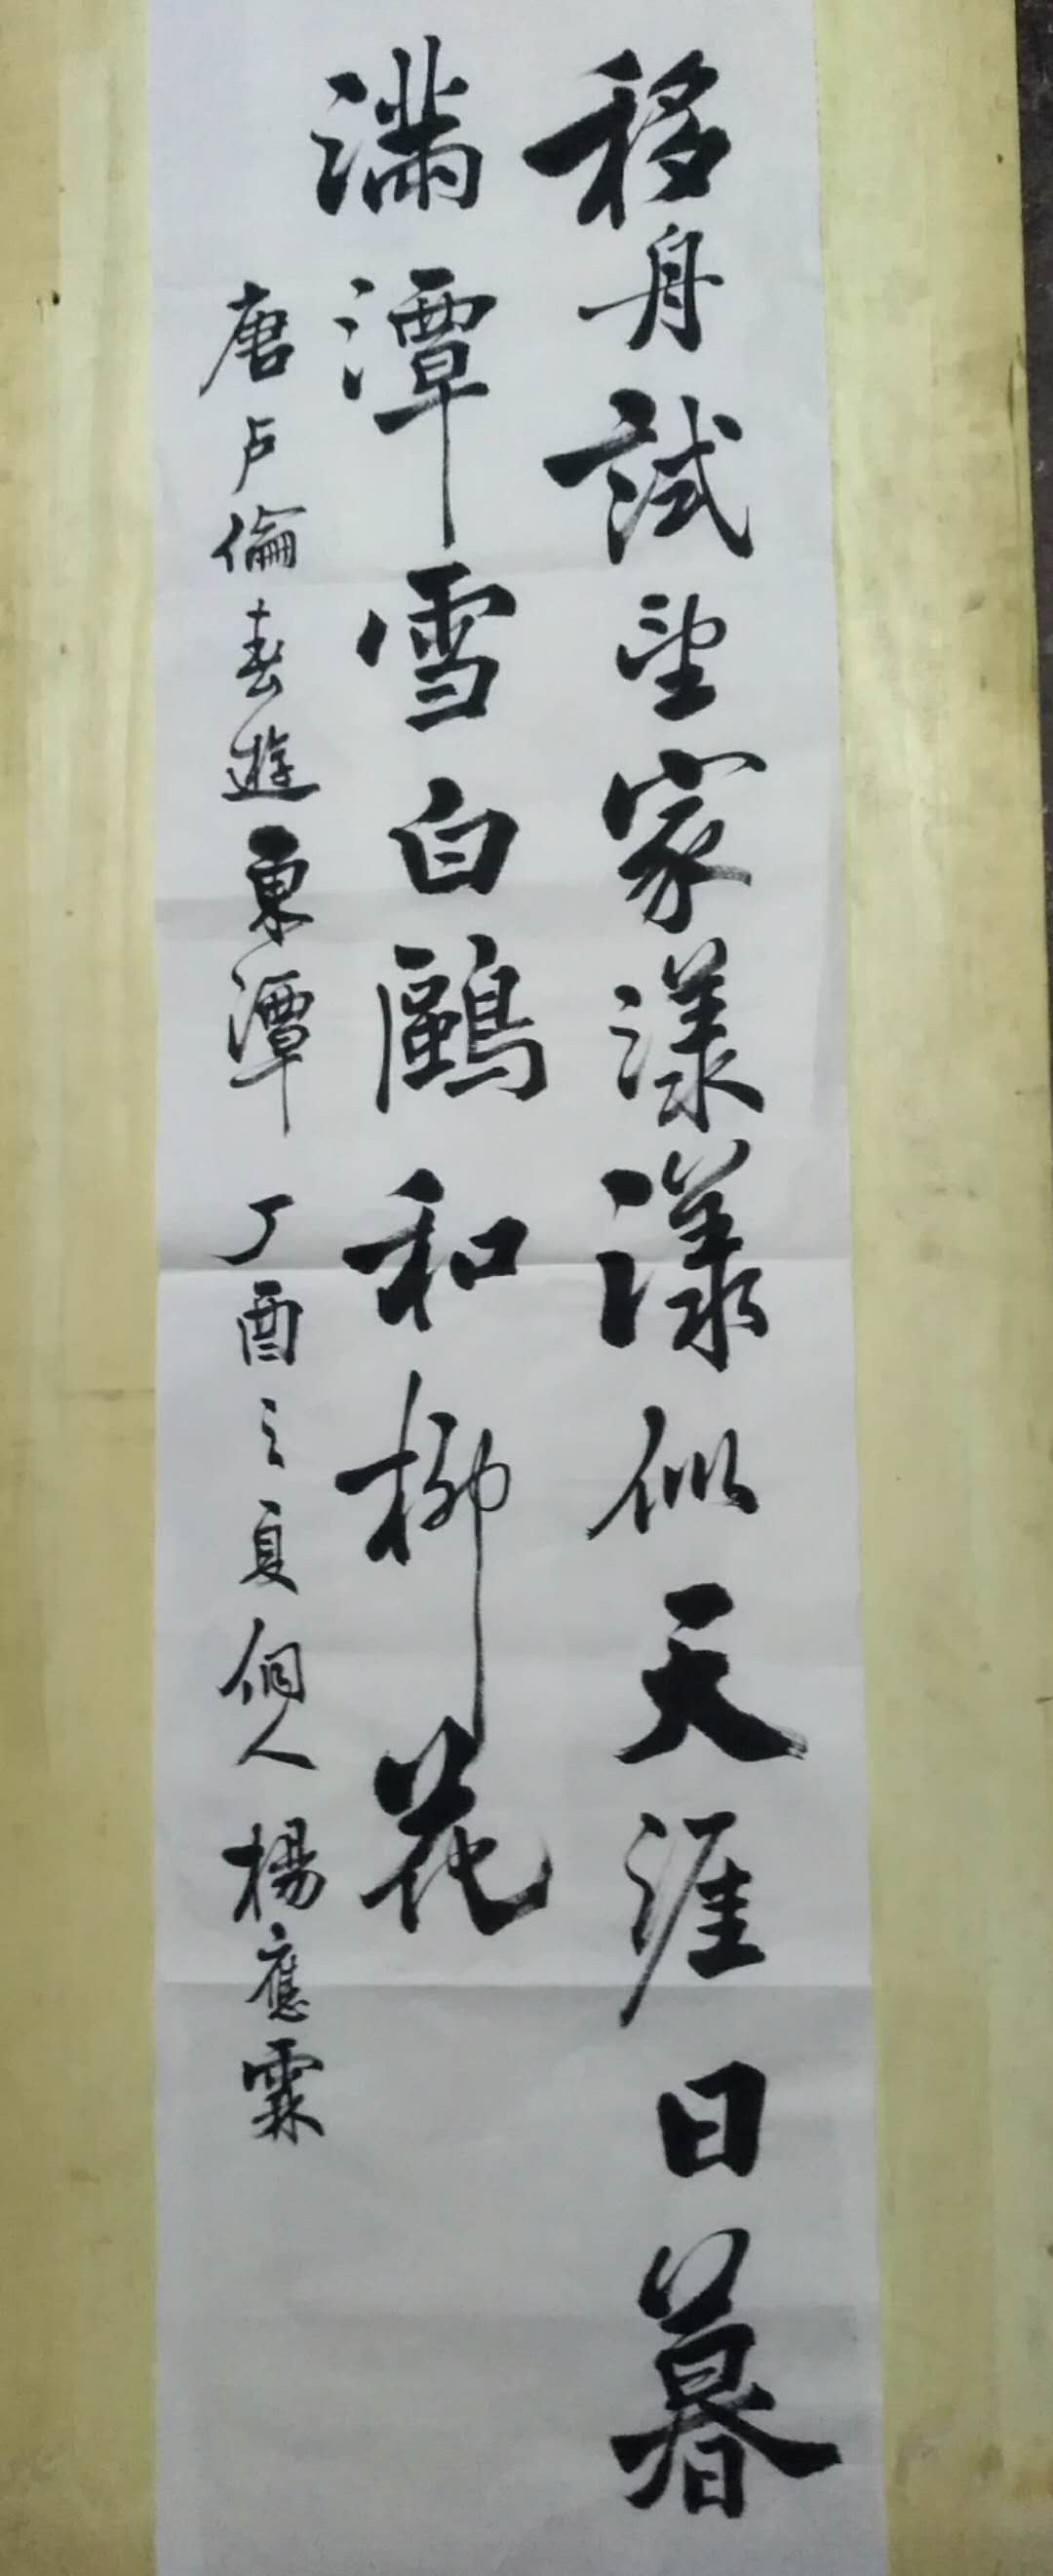 移舟試望家漾漾似天涯日暮
滿潭雪白鷗和柳花
唐卢倫春遊東潭 丁酉之夏侗人楊應霖